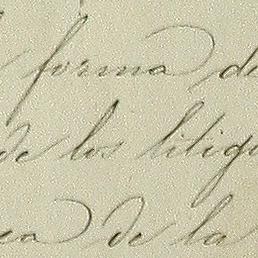 forma de
de los litig
de la